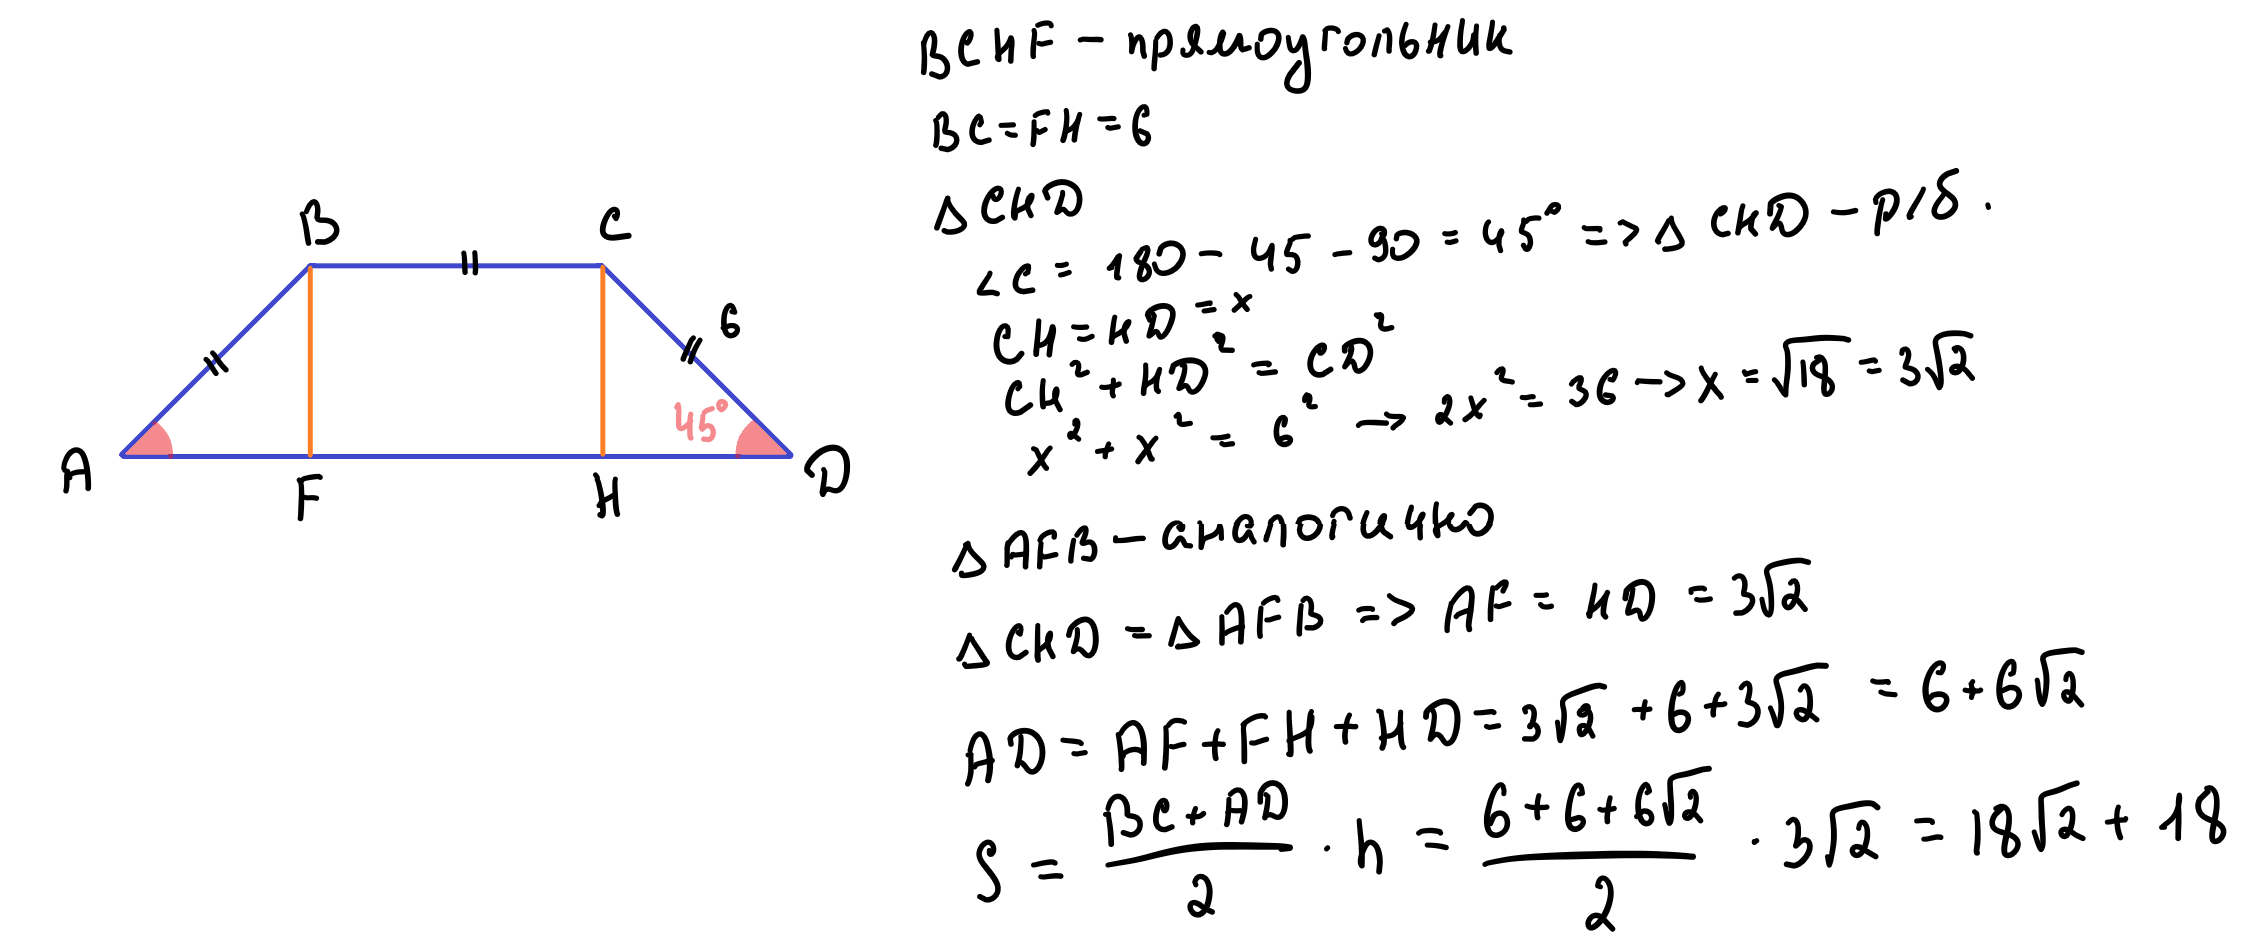 B C
6
45°
A F H D
BCHF - прямоугольник
BC = FH = 6
△CHD
∠C = 180 - 45 - 90 = 45° => △CHD - р/б.
CH = HD = x
CH² + HD² = CD²
x² + x² = 6² → 2x² = 36 → x = √18 = 3√2
△AFB - аналогично
△CHD = △AFB => AF = HD = 3√2
AD = AF + FH + HD = 3√2 + 6 + 3√2 = 6 + 6√2
S = (BC + AD)/2 · h = (6 + 6 + 6√2)/2 · 3√2 = 18√2 + 18